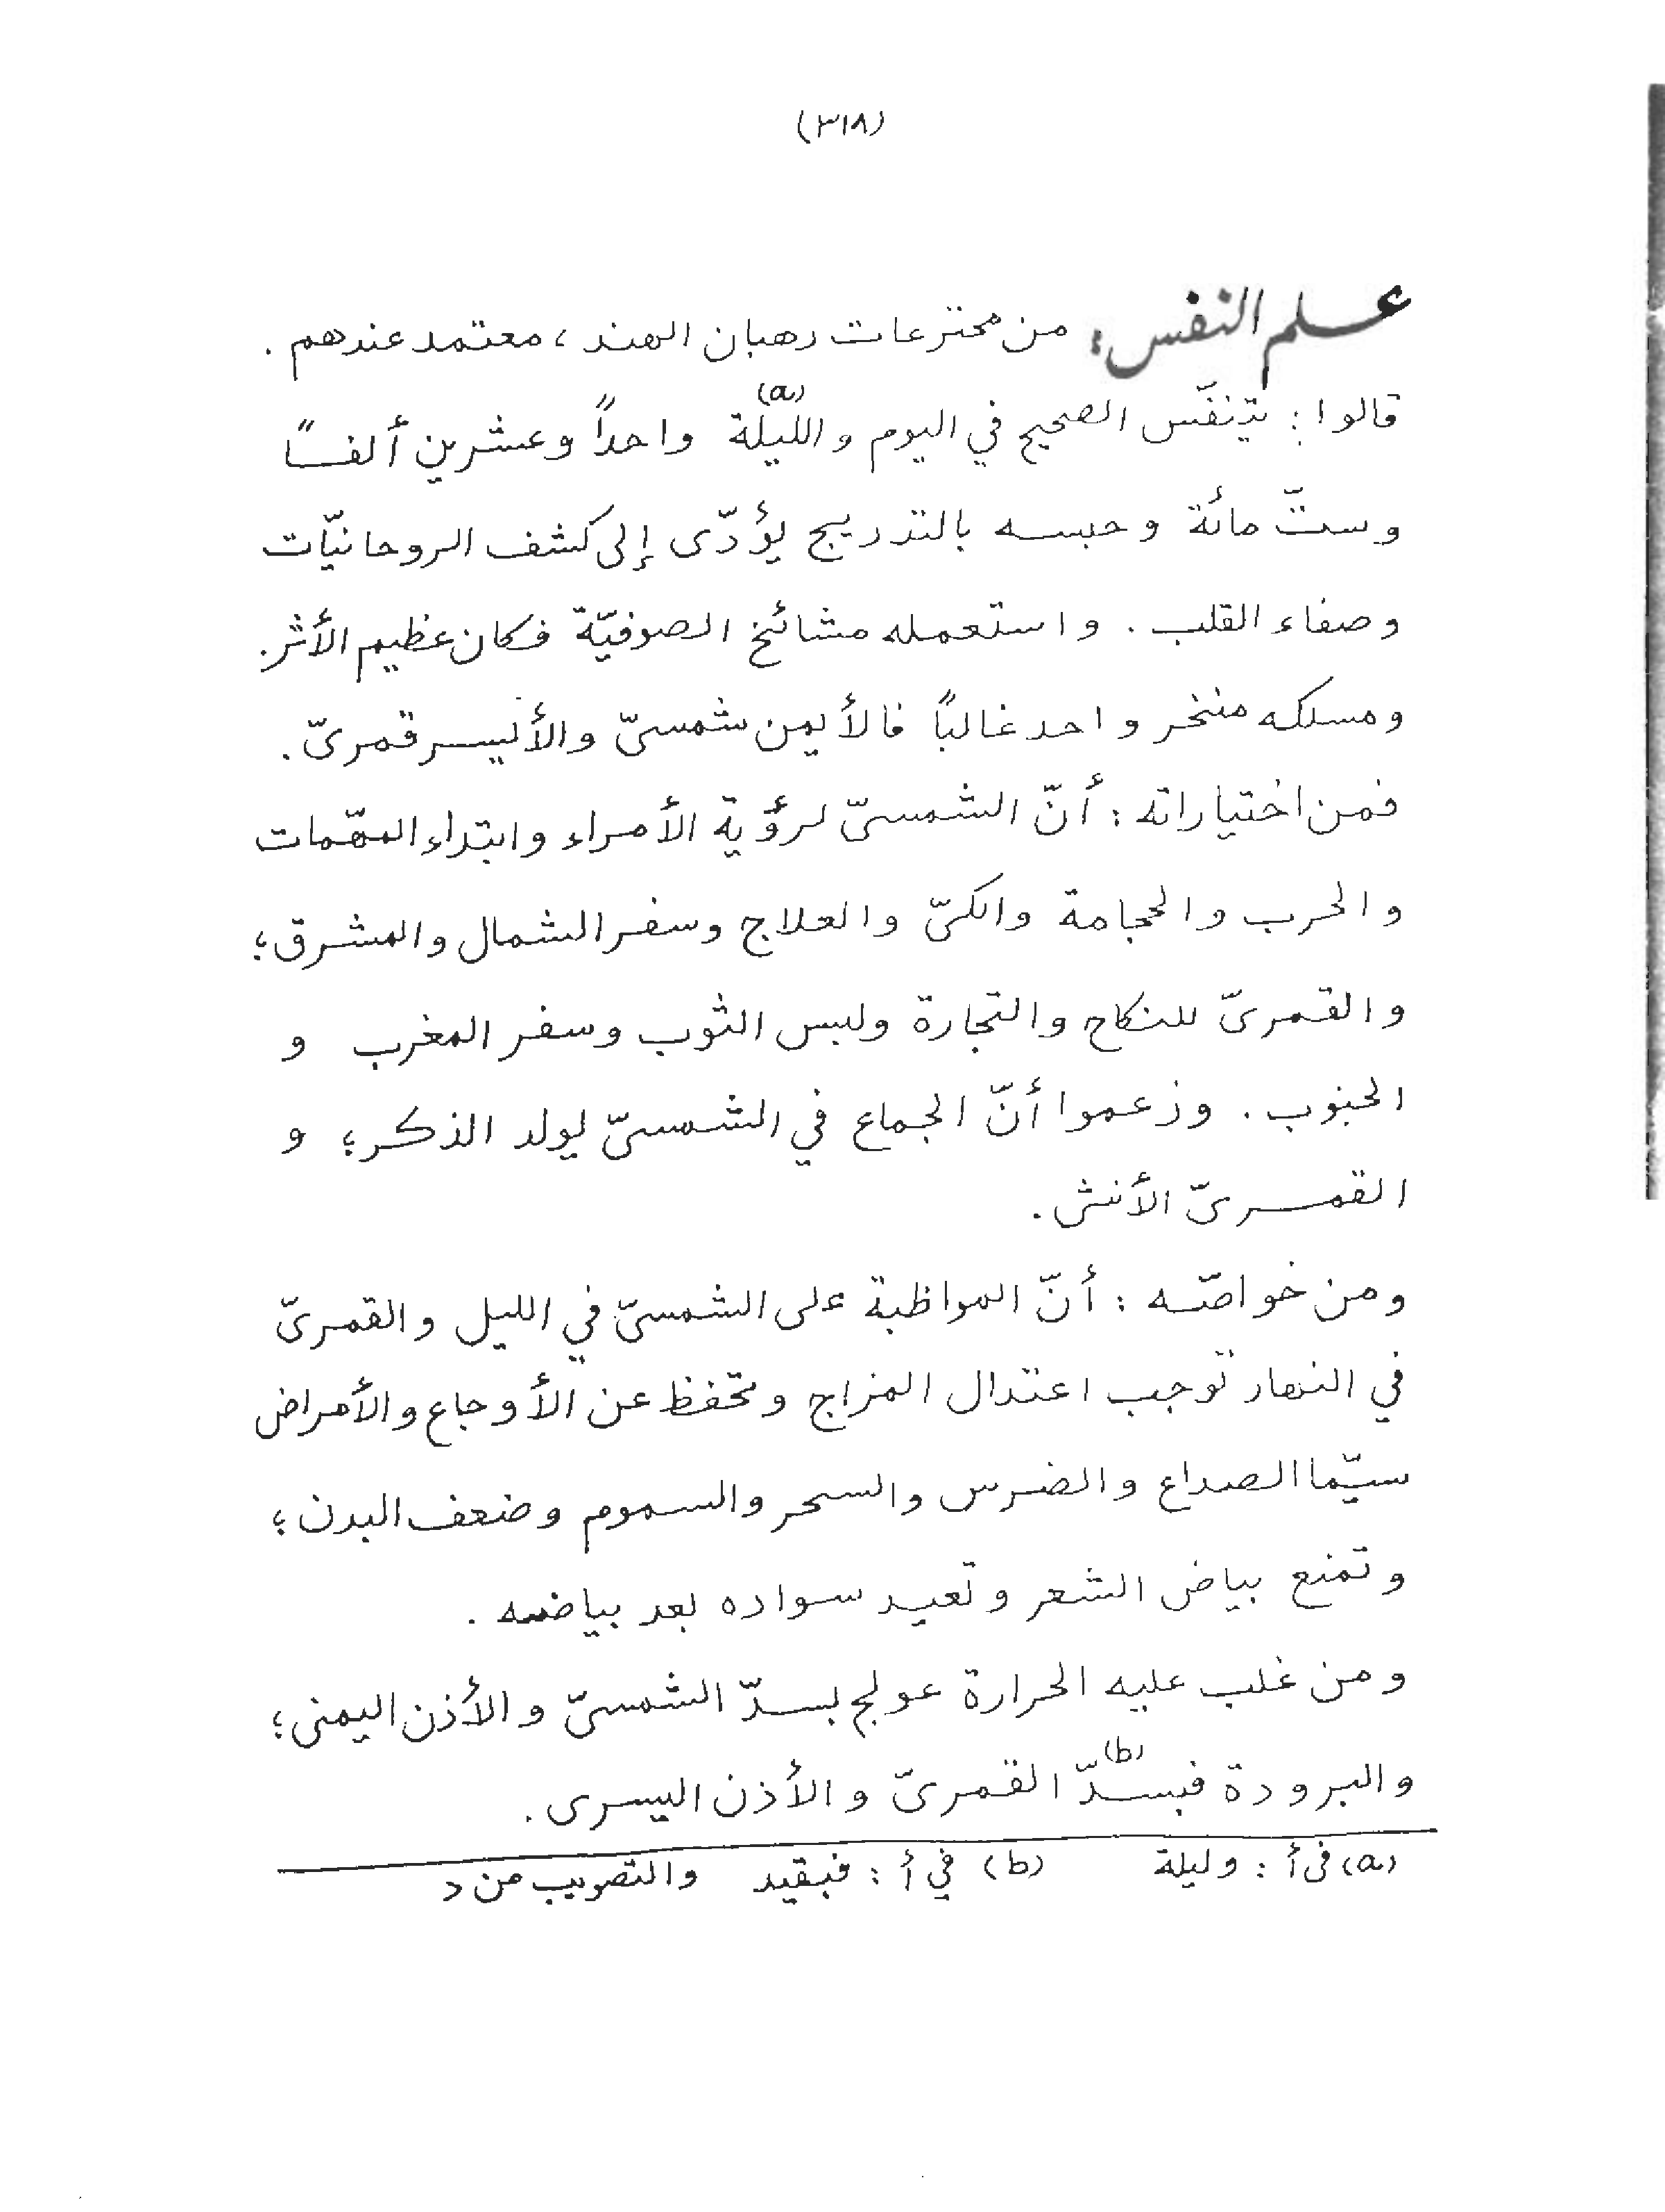 (٣١٨)
علم النفس: من مخترعات رهبان الهند، معتمد عندهم.
قالوا: يتنفّس الصحيح في اليوم والليّلة (a) واحداً وعشرين ألفاً
وستّ مائة وحبسه بالتدريج يؤدّى إلى كشف الروحانيّات
وصفاء القلب. واستعمله مشائخ الصوفيّة فكان عظيم الأثر.
ومسلكه منخر واحد غالباً فالأيمن شمسىّ والأيسر قمرىّ.
فمن اختياراته: أنّ الشمسىّ لرؤية الأمراء وابتداء المهّمات
والحرب والحجامة والكىّ والعلاج وسفر الشمال والمشرق؛
والقمرىّ للنكاح والتجارة ولبس الثوب وسفر المغرب و
الجنوب. وزعموا أنّ الجماع في الشمسىّ يولد الذكر؛ و
القمرىّ الأنثى.
ومن خواصّه: أنّ المواظبة على الشمسىّ في الليل والقمرىّ
في النهار توجب اعتدال المزاج وتحفظ عن الأوجاع والأمراض
سيّما الصداع والضرس والسحر والسموم وضعف البدن؛
وتمنع بياض الشعر وتعيد سواده بعد بياضه.
ومن غلب عليه الحرارة عولج بسدّ الشمسىّ والأذن اليمنى؛
والبرودة فبسدّ (b) القمرىّ والأذن اليسرى.
(a) فى أ: وليلة (b) في أ: فبقيد والتصويب من د